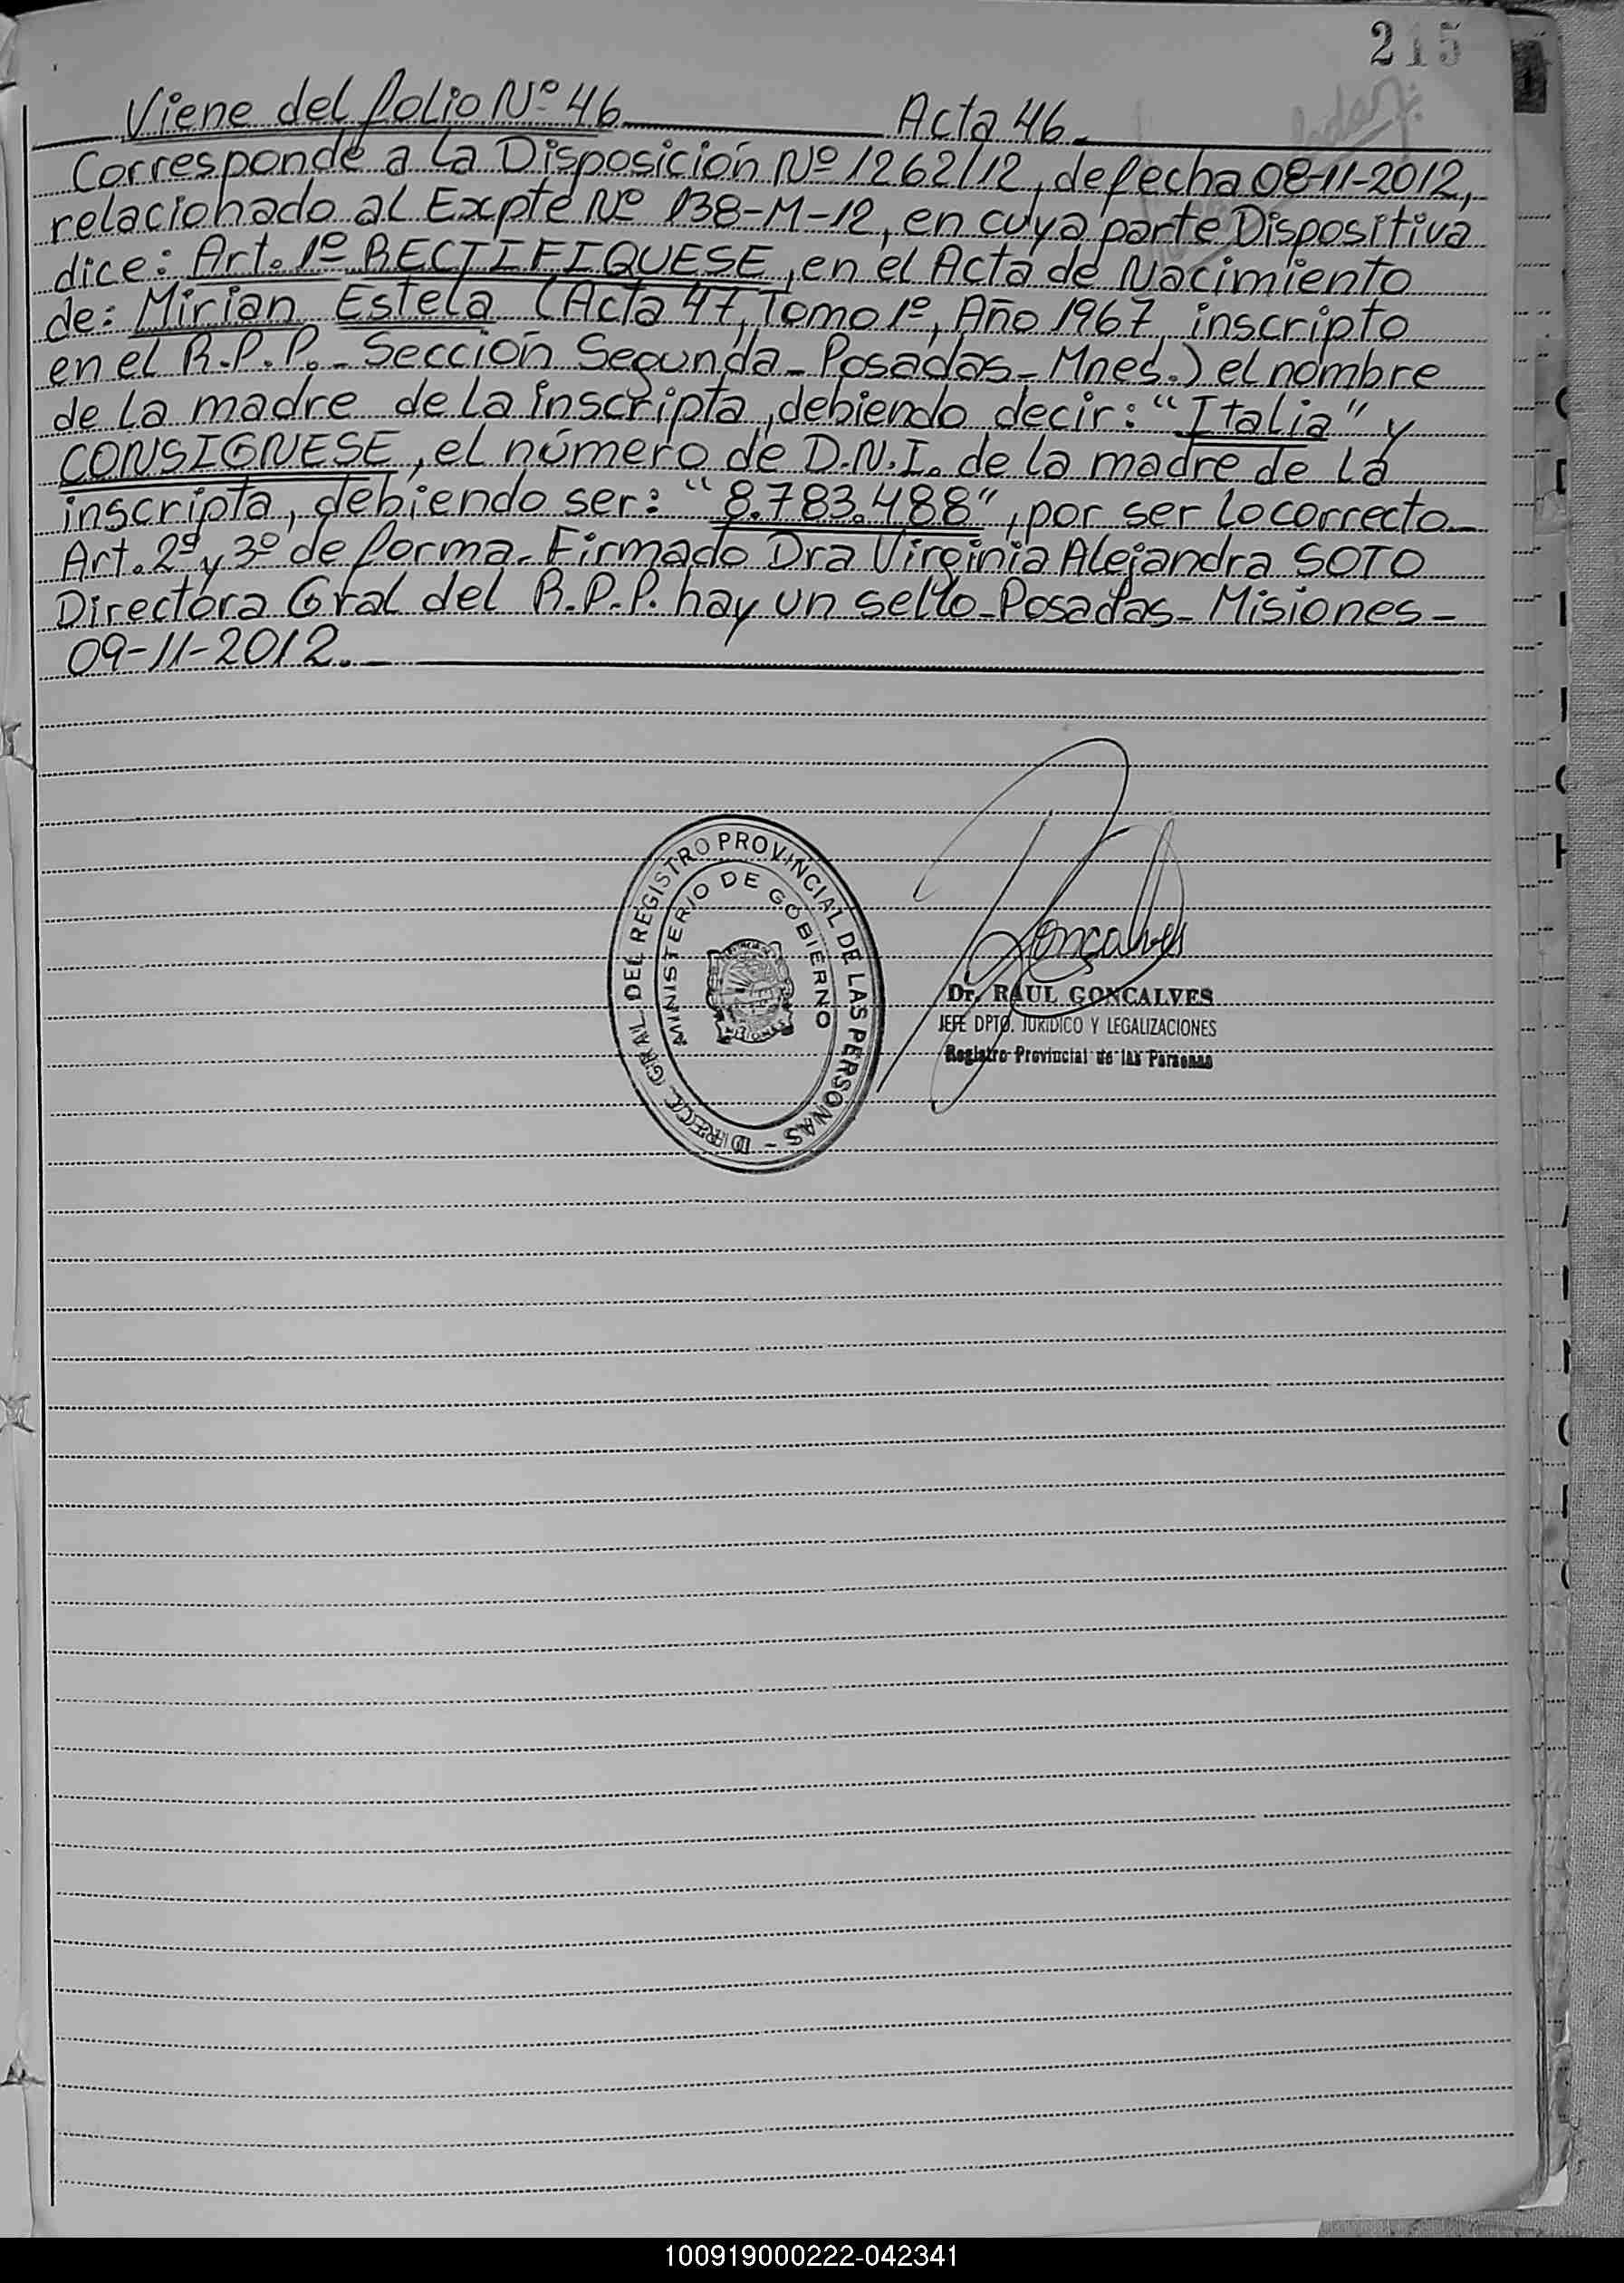 215
Viene del folio Nº 46 Acta 46
Corresponde a la Disposición Nº 1262/12, de fecha 08-11-2012,
relacionado al Expte Nº 138-M-12, en cuya parte Dispositiva
dice: Art. 1º RECTIFIQUESE, en el Acta de Nacimiento
de: Mirian Estela (Acta 47, Tomo 1º, Año 1967, inscripto
en el R.P.P. - Sección Segunda - Posadas - Mnes.) el nombre
de la madre de la inscripta, debiendo decir: "Italia" y
CONSIGNESE, el número de D.N.I. de la madre de la
inscripta, debiendo ser: "8.783.488", por ser lo correcto -
Art. 2º y 3º de forma - Firmado Dra Virginia Alejandra SOTO
Directora Gral del R.P.P. hay un sello - Posadas - Misiones -
09-11-2012. -
DIRECC. GRAL. DEL REGISTRO PROVINCIAL DE LAS PERSONAS -
MINISTERIO DE GOBIERNO
MISIONES
Gonçalves
Dr. RAUL GONCALVES
JEFE DPTO. JURIDICO Y LEGALIZACIONES
Registro Provincial de las Personas
100919000222-042341